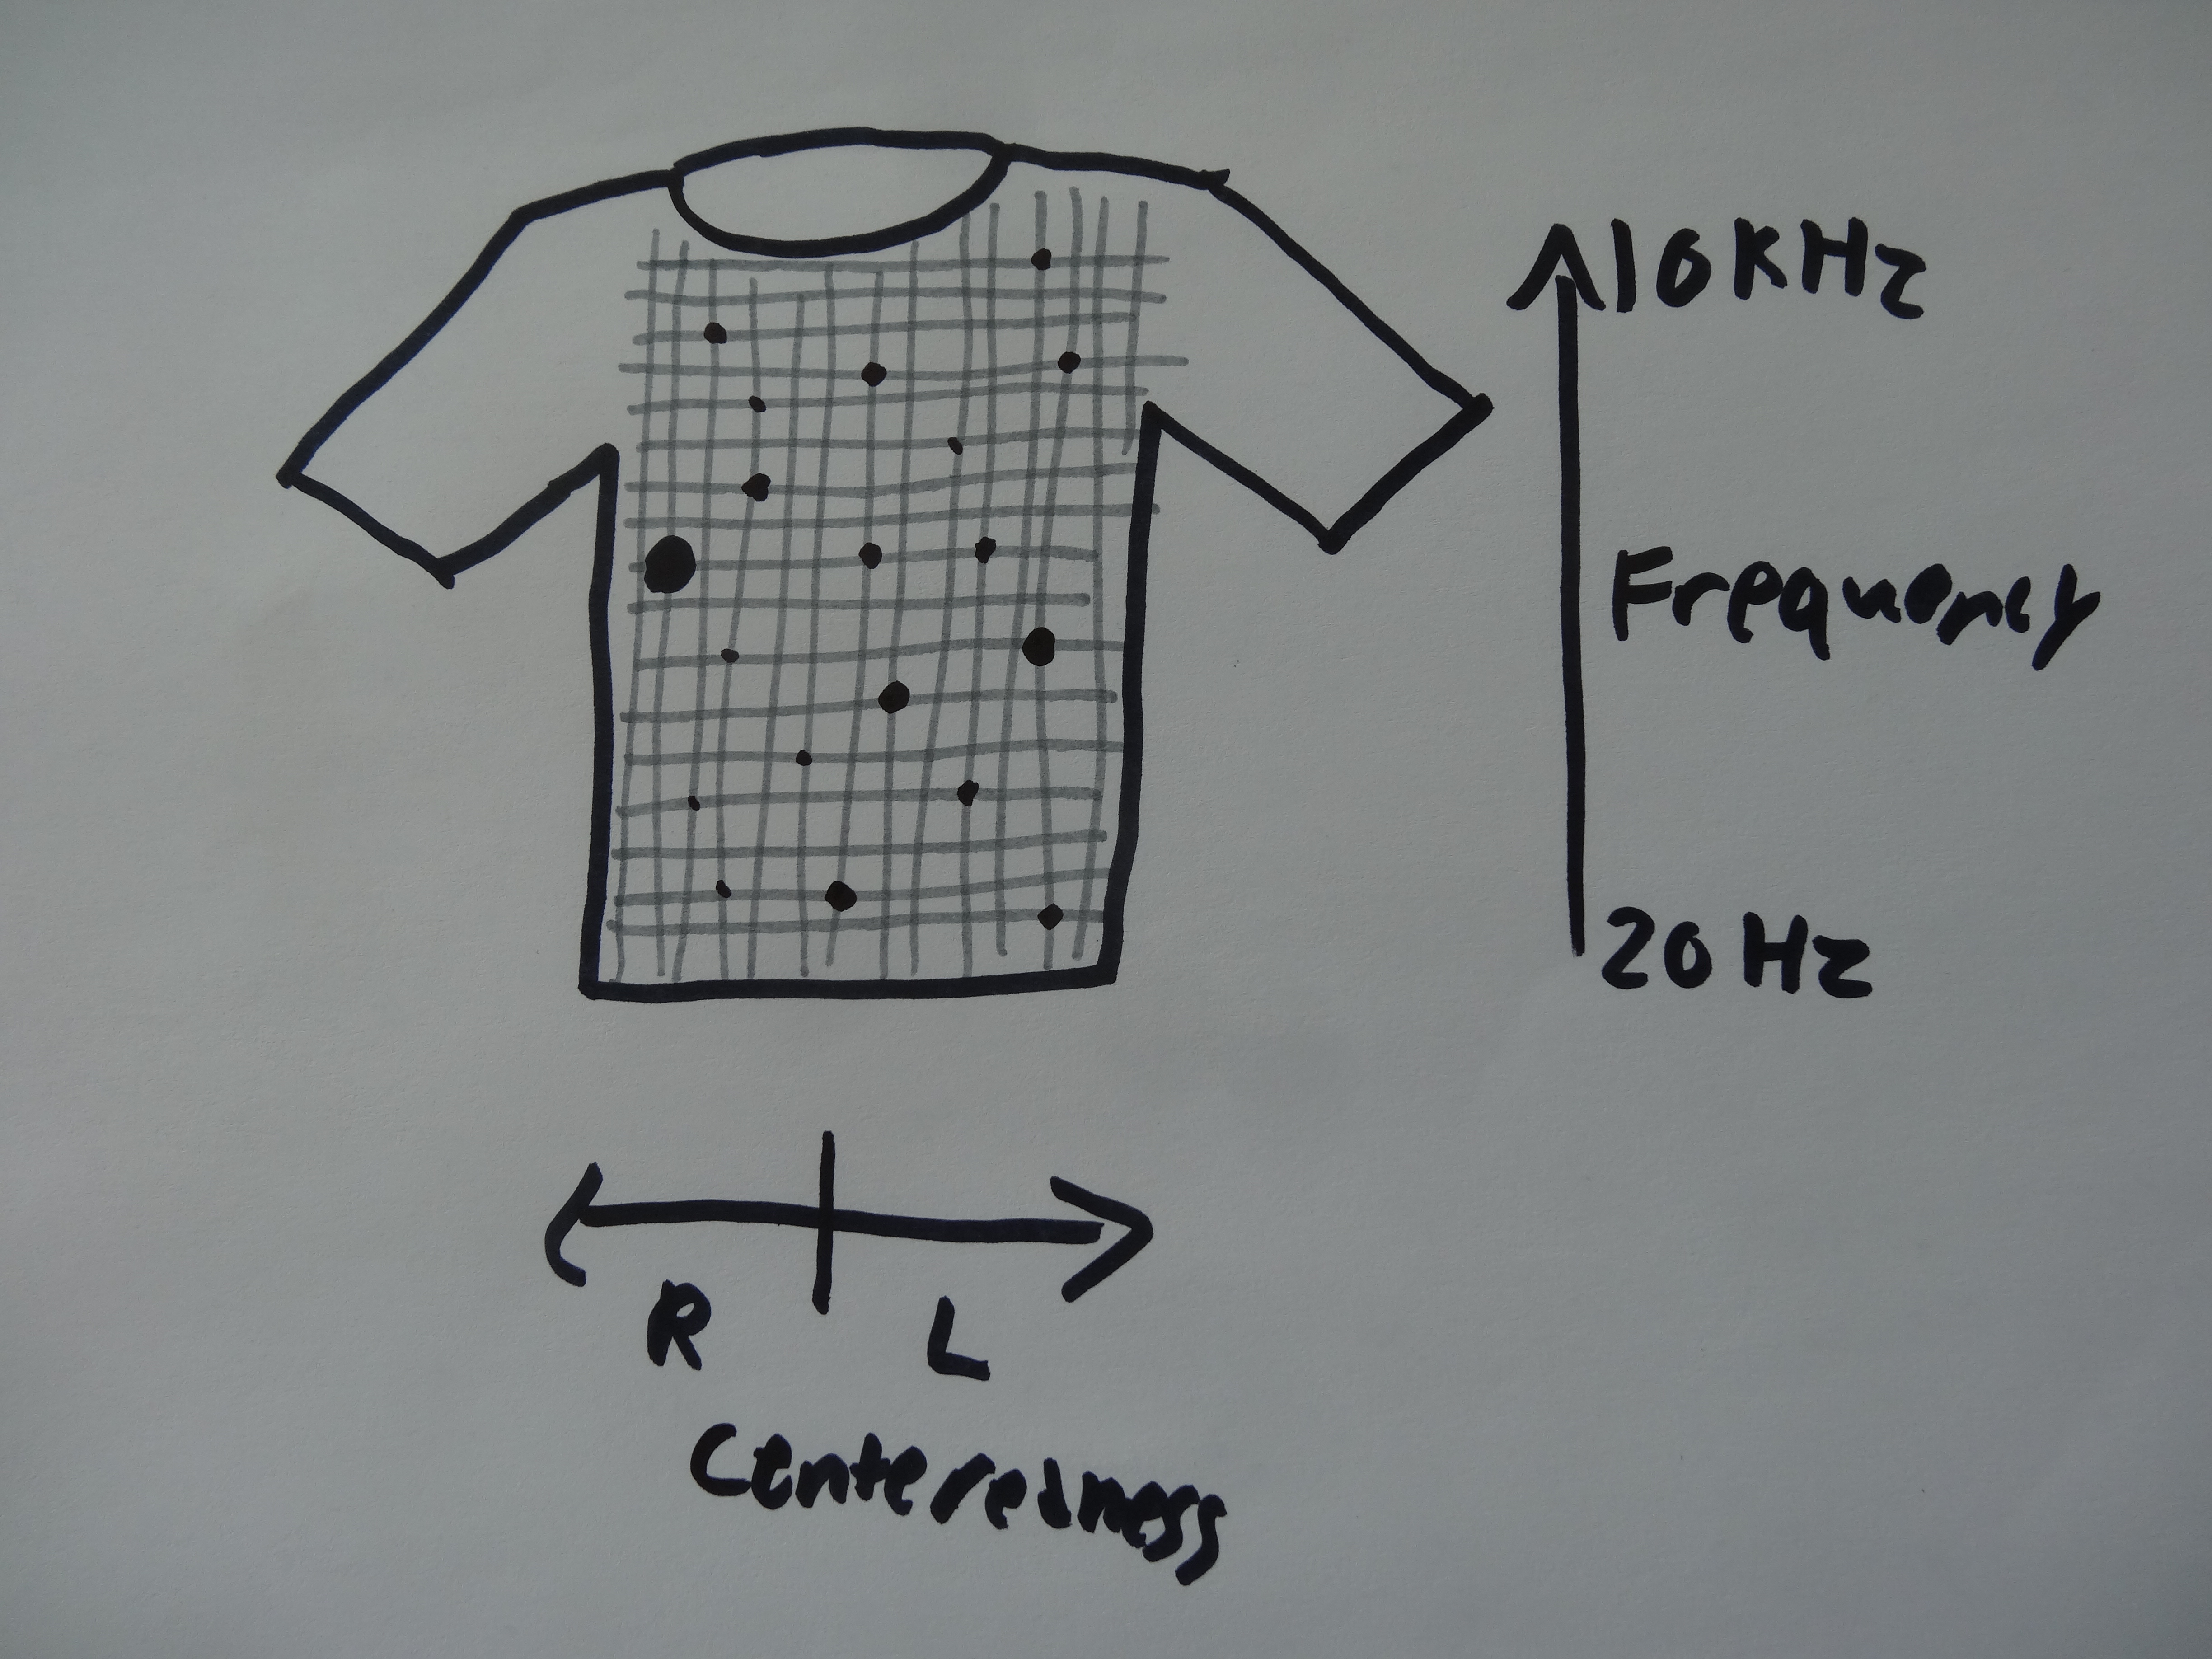 10KHz
Frequency
20Hz
R L
Centeredness